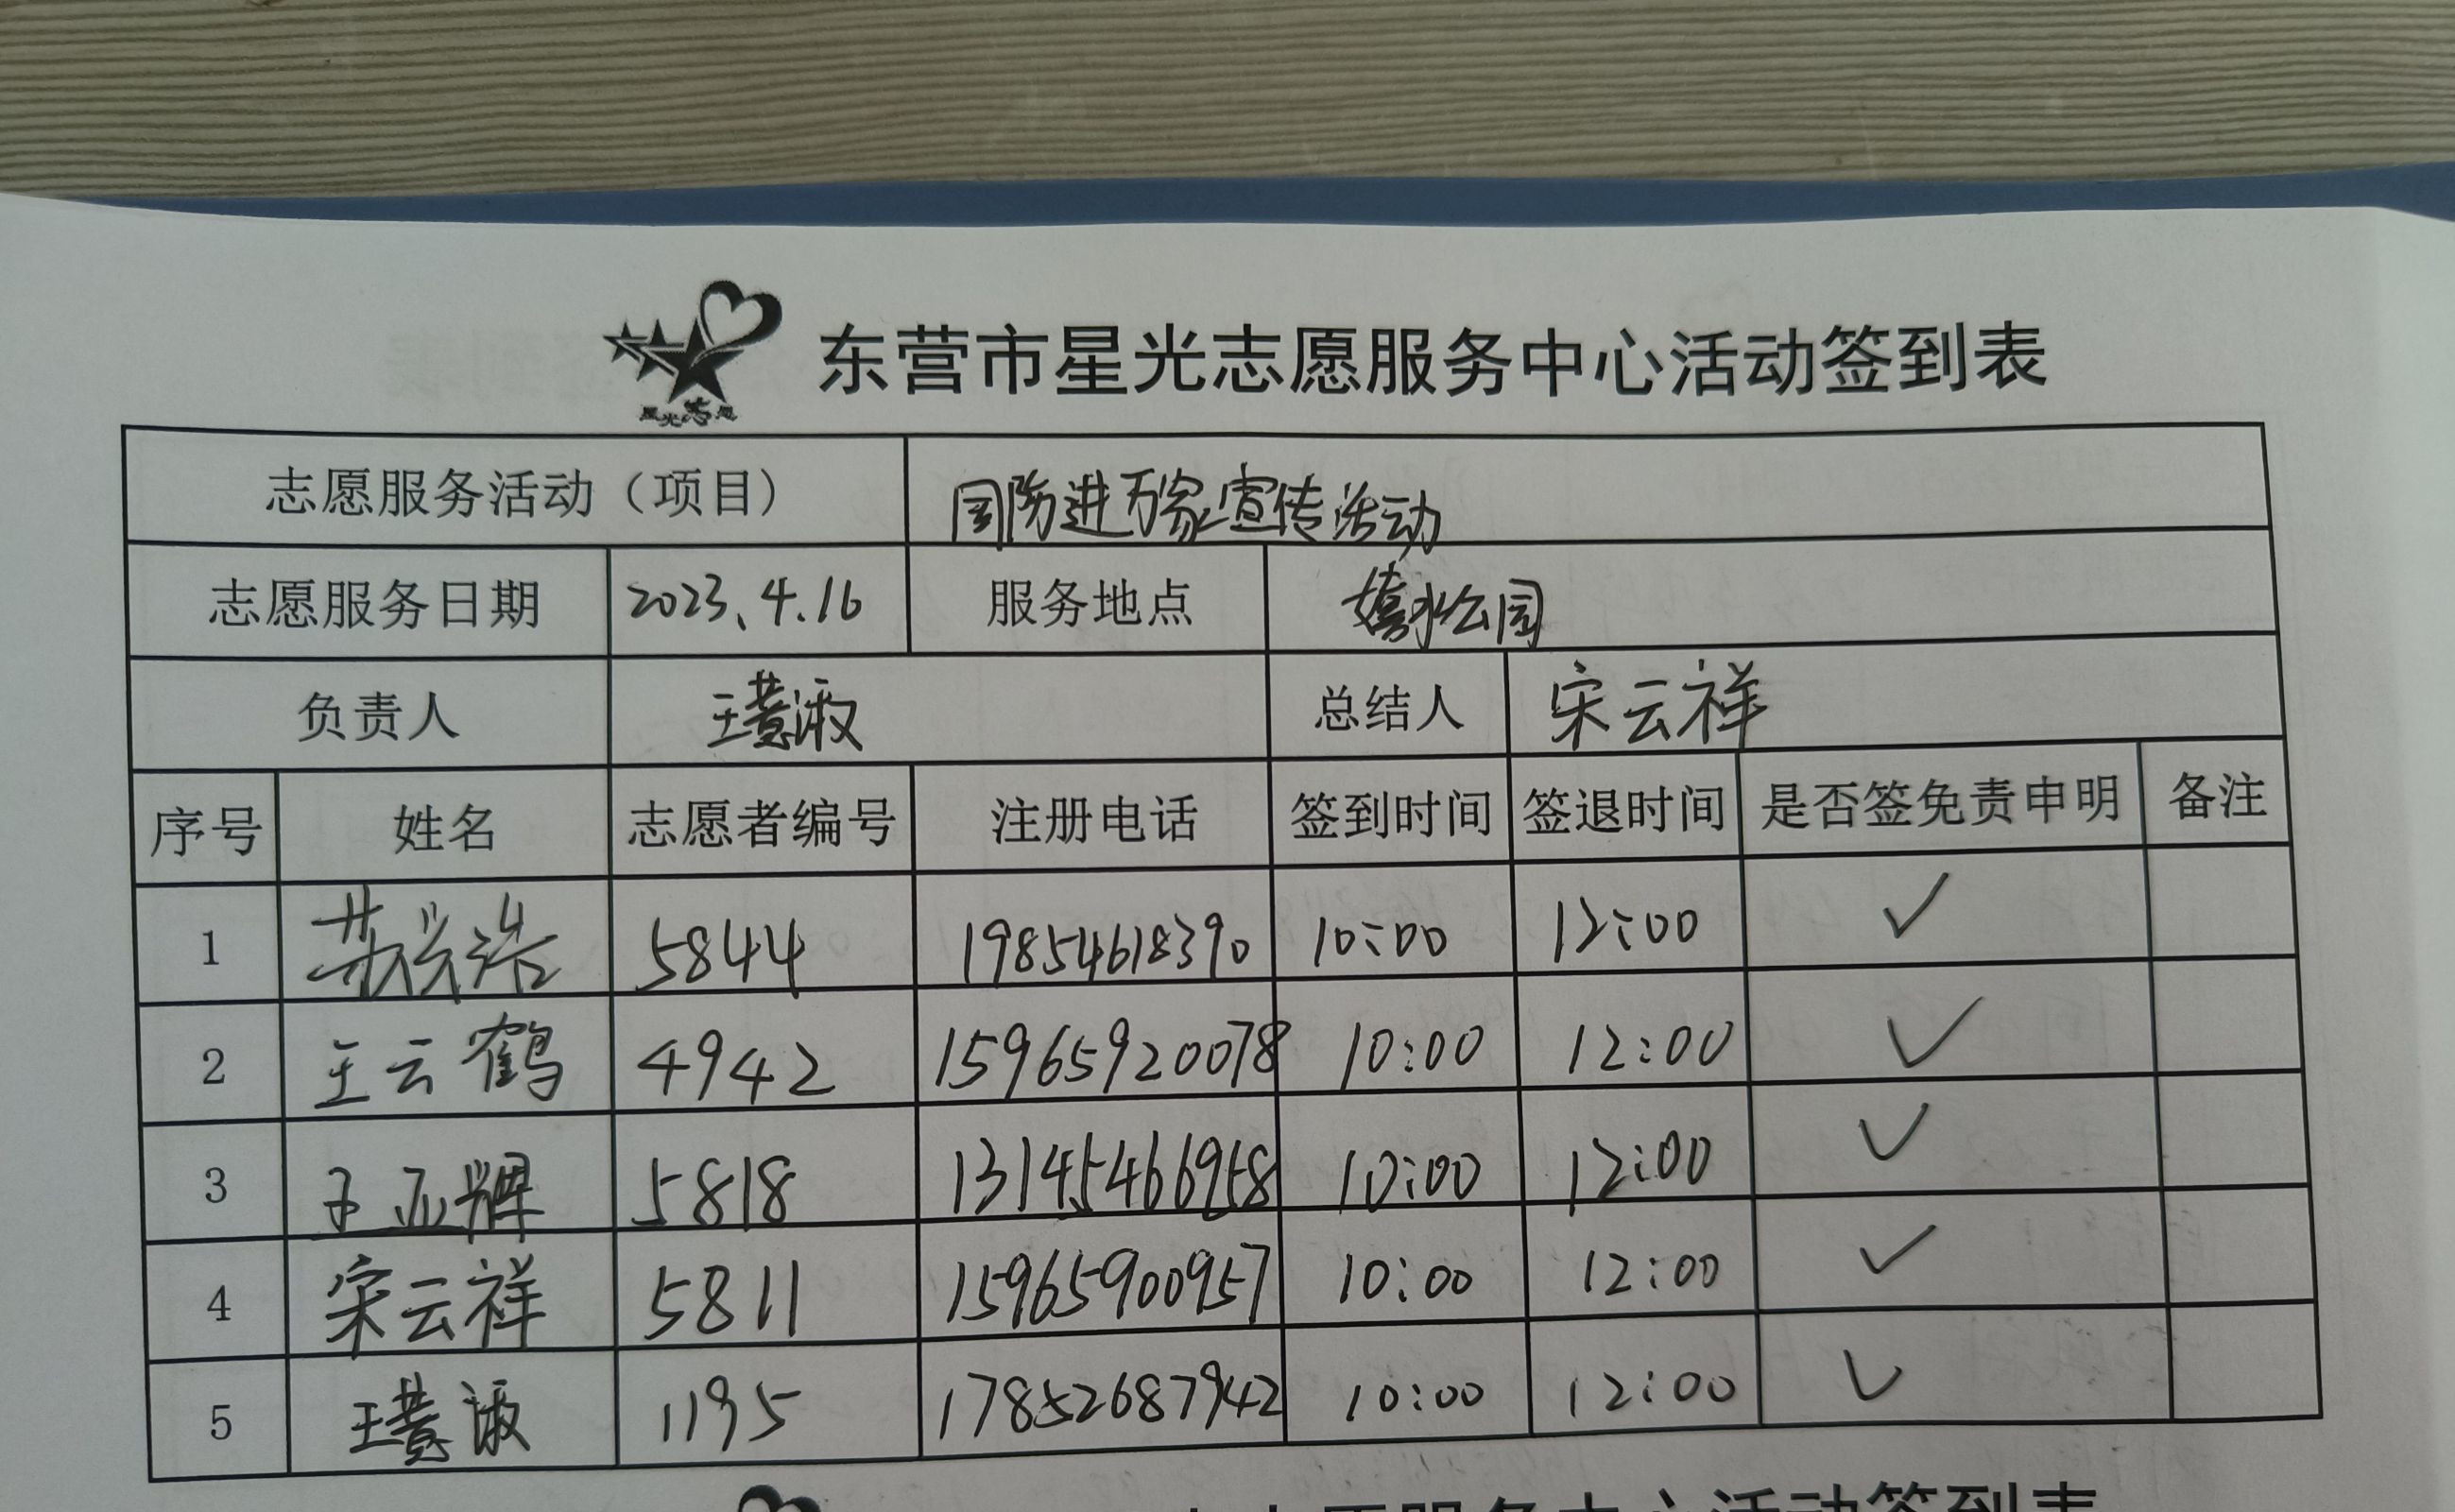 星光志愿
东营市星光志愿服务中心活动签到表
志愿服务活动（项目） 国防进万家宣传活动
志愿服务日期 2023、4.16 服务地点 嬉水公园
负责人 王 淑 总结人 宋云祥
序号 姓名 志愿者编号 注册电话 签到时间 签退时间 是否签免责申明 备注
1 苏兴浩 5844 19854618390 10:00 12:00 ✓
2 王云鹤 4942 15965920078 10:00 12:00 ✓
3 王亚辉 5818 13145466958 10:00 12:00 ✓
4 宋云祥 5811 15965900957 10:00 12:00 ✓
5 王 淑 1195 17852687942 10:00 12:00 ✓
志愿服务中心活动签到表